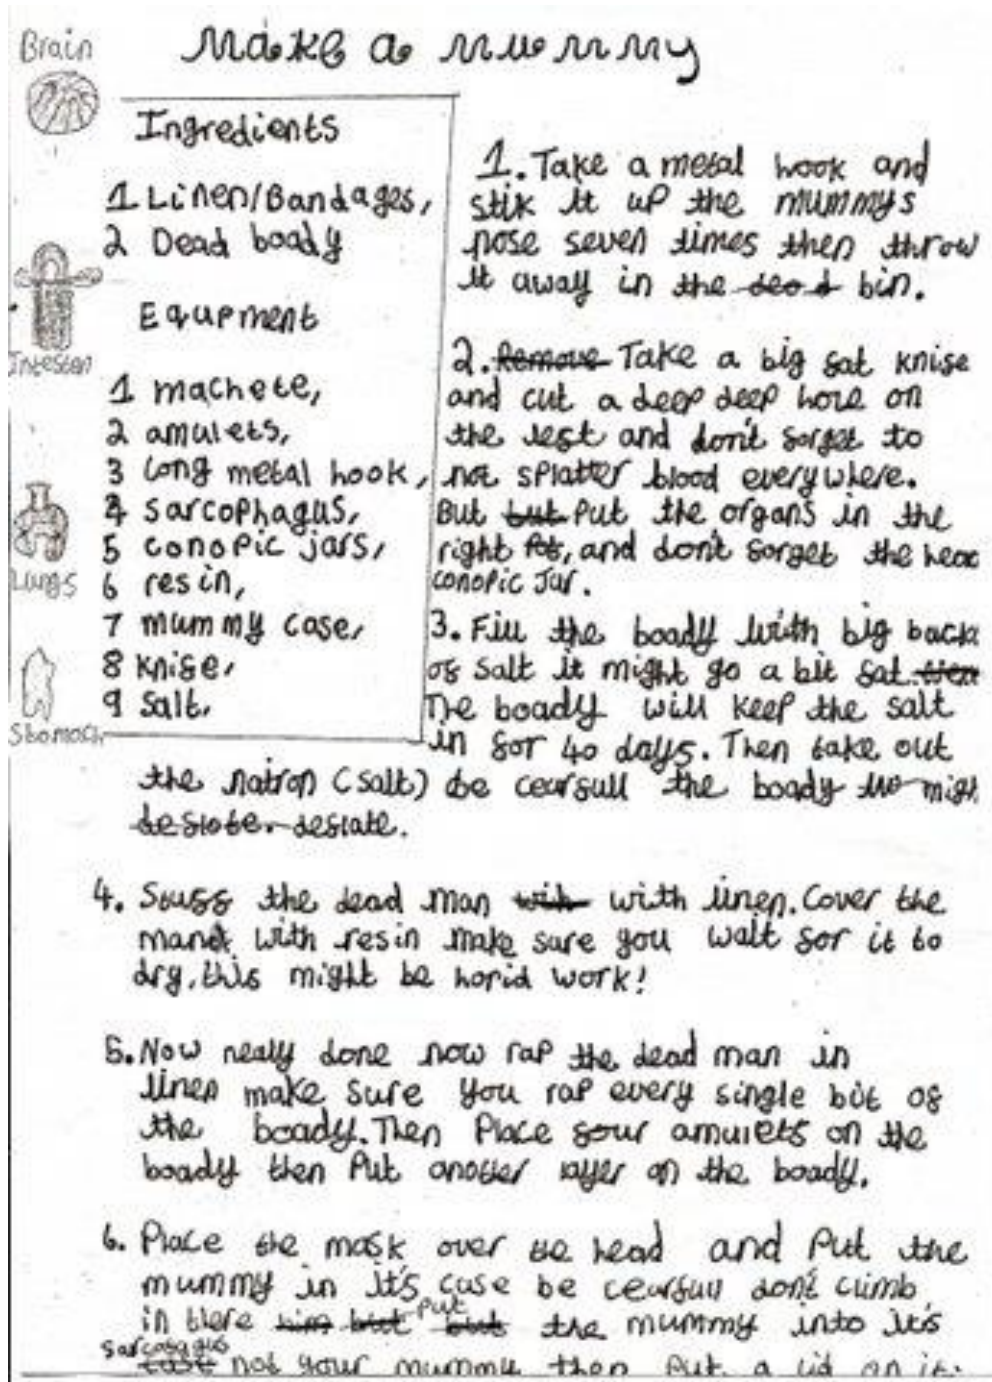 Make a mummy
Brain
Ingredients
1 Linen/Bandages,
2 Dead boady
Equpment
1 machete,
2 amulets,
3 Long metal hook,
4 sarcophagus,
5 conopic jars,
6 resin,
7 mummy case,
8 knife,
9 salt.
Intesten
Lungs
Stomach
1. Take a metal hook and
stik it up the mummys
nose seven times then throw
it away in the bin.
2. Remove Take a big fat knife
and cut a deep deep hole on
the left and don't forget to
not splatter blood everywhere.
But but Put the organs in the
right and don't forget the
conopic Jar.
3. Fill the boady with big back
of salt it might go a bit fat.
The boady will keep the salt
in for 40 days. Then take out
the natron (salt) be cearfull the boady migh
deflate.
4. Stuff the dead man with with linen. Cover the
man with resin make sure you wait for it to
dry, this might be horid work!
5. Now nealy done now rap the dead man in
linen make sure you rap every single bit of
the boady. Then Place your amulets on the
boady then Put another layer on the boady.
6. Place the mask over the head and Put the
mummy in it's case be cearfull don't climb
in there him but put but the mummy into it's
sarcofagus
case not your mummy then Put a lid on it.